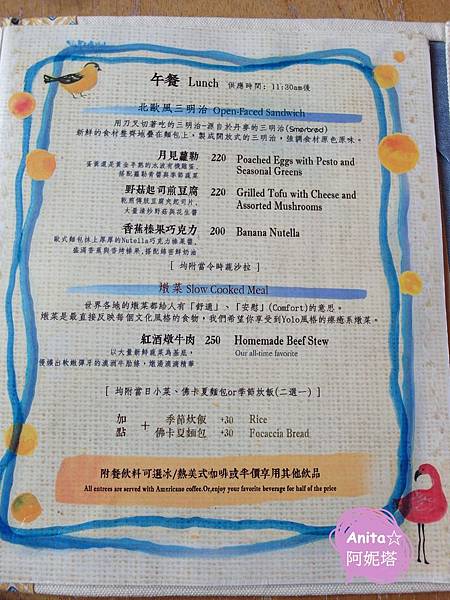 午餐 Lunch 供應時間: 11:30am後
北歐風三明治 Open-Faced Sandwich
用刀叉切著吃的三明治-源自於丹麥的三明治(Smørbrød)
新鮮的食材整齊地疊在麵包上，製成開放式的三明治，強調食材原色原味。
月見蘿勒 220 Poached Eggs with Pesto and
蛋黃還是黃金半熟的水波有機雞蛋， Seasonal Greens
搭配蘿勒青醬與季節蔬菜
野菇起司煎豆腐 220 Grilled Tofu with Cheese and
乾煎傳統豆腐夾起司片、 Assorted Mushrooms
大量清炒野菇與花生醬
香蕉榛果巧克力 200 Banana Nutella
歐式麵包抹上厚厚的Nutella巧克力榛果醬，
鋪滿香蕉與香烤榛果，搭配綿密鮮奶油
[ 均附當令時蔬沙拉 ]
燉菜 Slow Cooked Meal
世界各地的燉菜都給人有「舒適」、「安慰」(Comfort)的意思。
燉菜是最直接反映每個文化風格的食物，我們希望你享受到Yolo風格的療癒系燉菜。
紅酒燉牛肉 250 Homemade Beef Stew
以大量新鮮蔬菜為基底， Our all-time favorite
慢燉出軟嫩彈牙的澳洲牛肋條，燉湯滴滴精華
[ 均附當日小菜、佛卡夏麵包or季節炊飯(二選一) ]
加點 + 季節炊飯 +30 Rice
佛卡夏麵包 +30 Focaccia Bread
附餐飲料可選冰/熱美式咖啡或半價享用其他飲品
All entrees are served with Americano coffee.Or,enjoy your favorite beverage for half of the price
Anita☆
阿妮塔